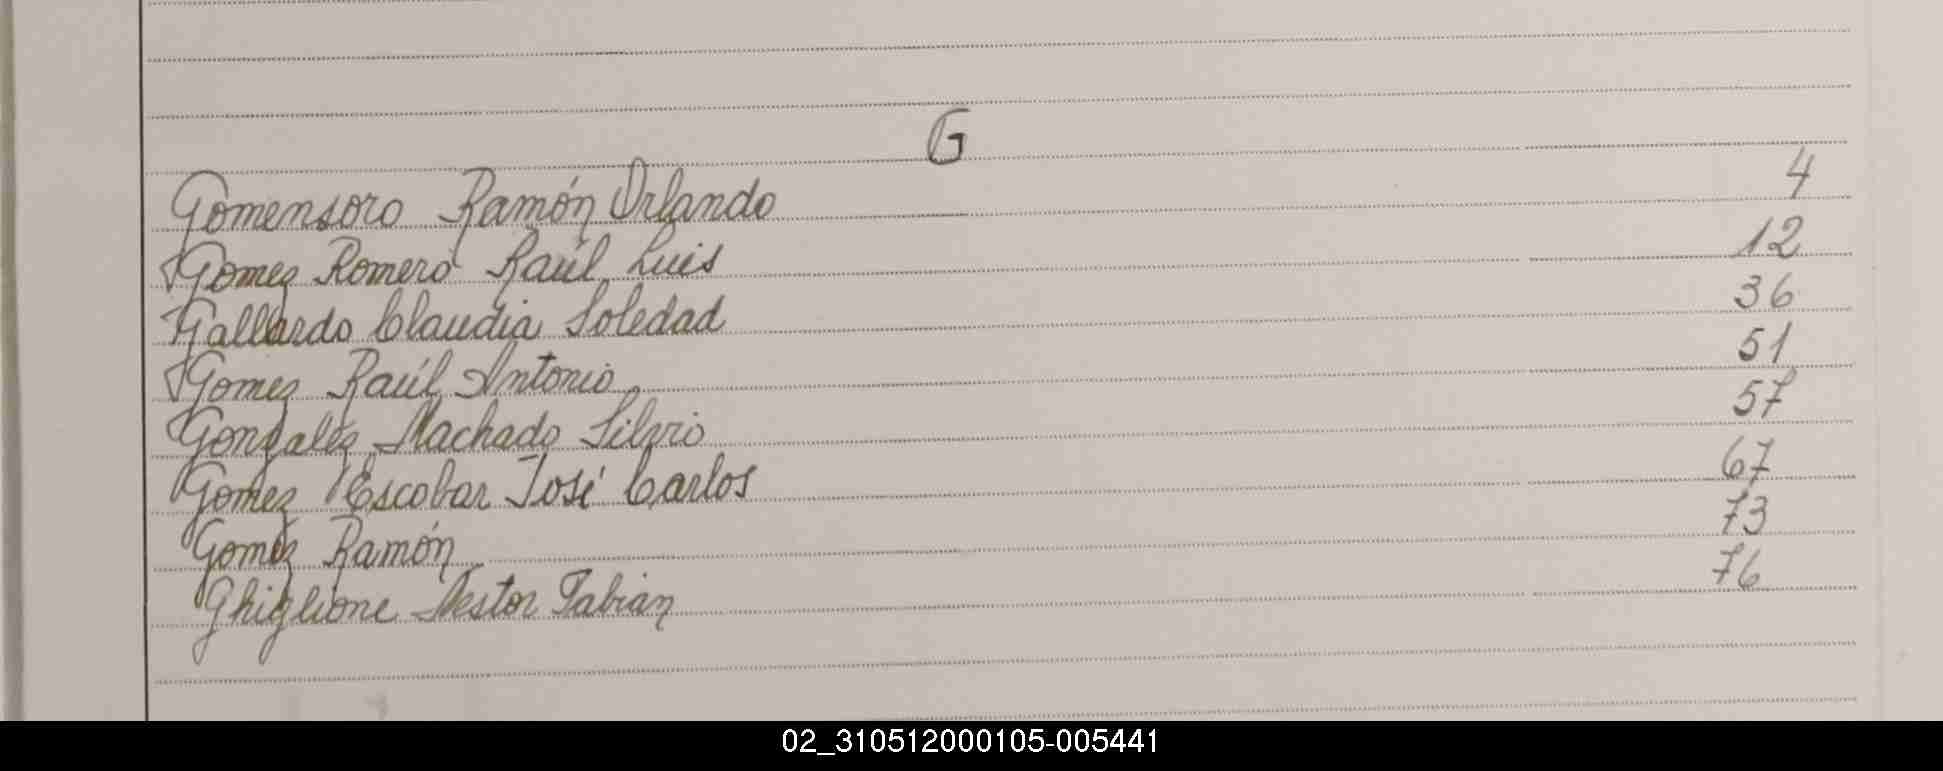 G
Gomensoro Ramón Orlando 4
Gomez Romero Raúl Luis 12
Gallardo Claudia Soledad 36
Gomez Raúl Antonio 51
Gonzalez Machado Silvio 57
Gomez Escobar José Carlos 67
Gomez Ramón 73
Ghiglione Nestor Fabian 76
02_310512000105-005441